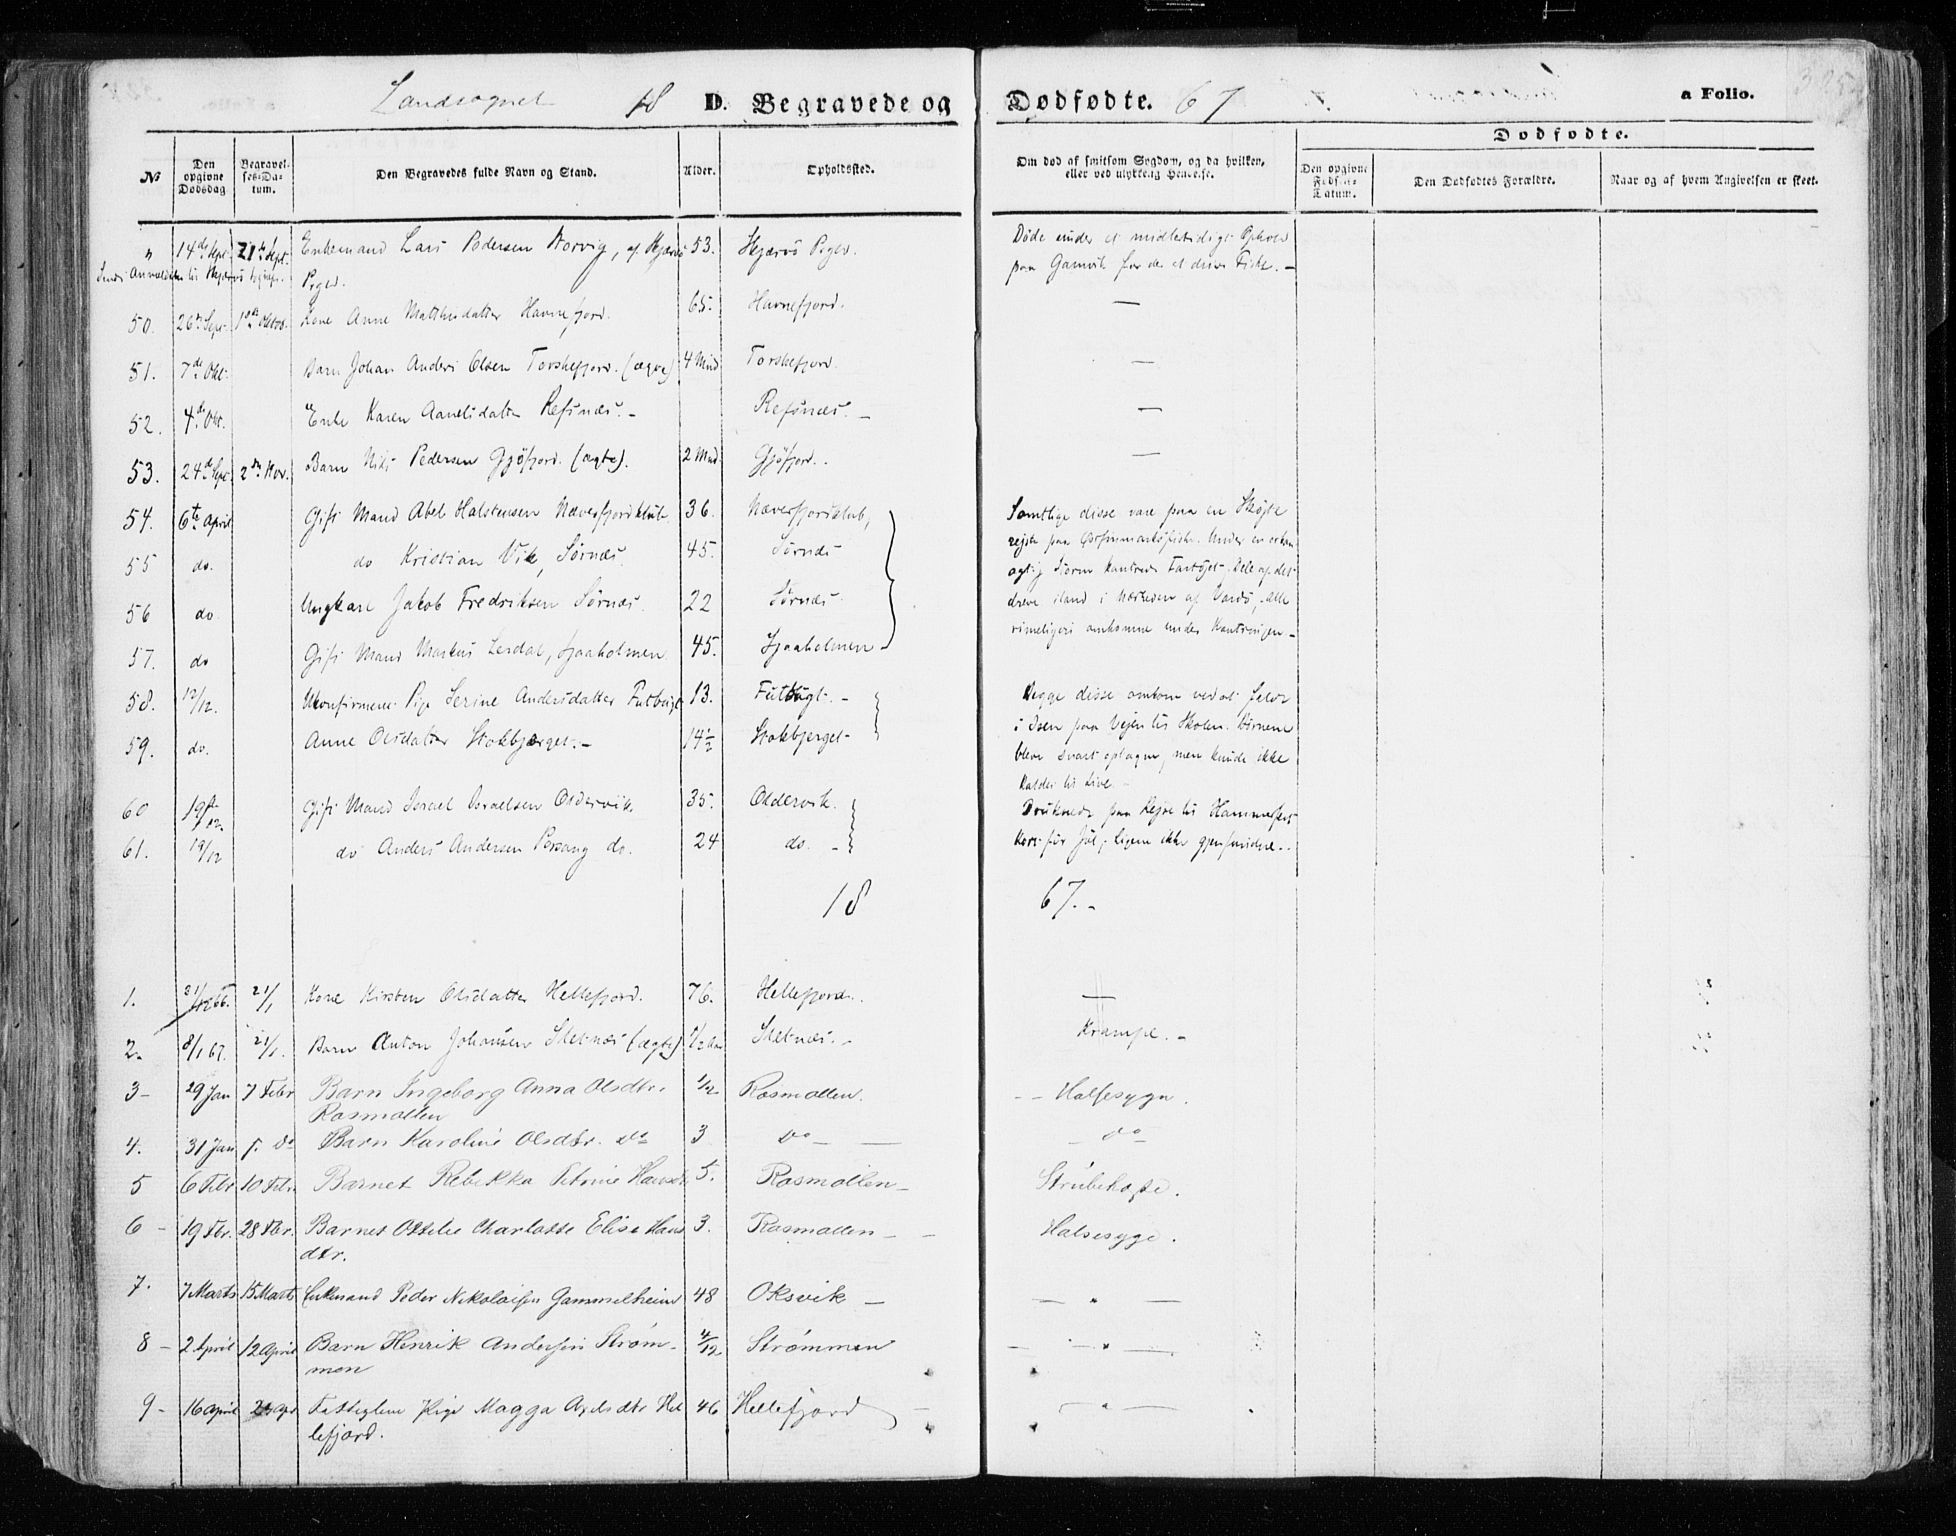 Landsognet 18 D. Begravede og Dødfødte. 67 a Folio. 325
Dødfødte.
No Den opgivne Dødsdag Begravelses-Datum. Den Begravedes fulde Navn og Stand. Alder. Opholdssted. Om død af smitsom Sygdom, og da hvilken, eller ved ulykkelig Hendelse. Den opgivne Fødsels-Datum. Den Dødfødtes Forældre. Naar og af hvem Angivelsen er skeet.
" 14de Sept. 21de Sept. Enkemand Lars Pedersen Norvig, af Skjervø 53. Skjervø Pgjed. Døde under et midlertidigt Ophold
Pgjed. paa Gamvik for der at drive Fiske. -
50. 26de Sept. 1ste Oktob. Kone Anne Matthisdatter Havnefjord. 65. Havnefjord. —
51. 7de Okt. Barn Johan Anders Olsen Torskefjord. (ægte) 4 Mnd. Torskefjord. —
52. 4de Okt. Enke Karen Aanetsdatter Refsnæs. - Refsnæs. - —
53. 24de Sept. 2den Nov. Barn Nils Pedersen Gjøfjord. (ægte). 2 Mnd. Gjøfjord. —
54. 6te April Gift Mand Abel Halstensen Næverfjordklub. 36. Næverfjordklub, Samtlige disse vare paa en Skøjte
55 do. do Kristian Vik, Sørnæs. 45. Sørnæs rejste paa Østfinmarksfiske. Under en orkan
56 do Ungkarl Jakob Fredriksen Sørnæs. 22 Sørnæs. agtig Storm kantrede Fartøjet. Dele af det
drev iland i Nærheden af Vardø, Alle
57. do Gift Mand Markus Lerdal, Sjaaholmen. 45. Sjaaholmen rimeligvis omkomne under Kantringen -
58. 12/12. Ukonfirmeret Pige Serine Andersdatter Futbugt. 13. Futbugt. - Begge disse omkom ved at falde
i Isen paa Vejen til Skolen. Børnene
59. do. Anne Olsdatter Stokbjerget. - 14½ Stokbjerget - bleve snart optagne, men kunde ikke
kaldes til Live. -
60 19de/12. Gift Mand Israel Israelsen Oldervik 35. Oldervik. Druknede paa Rejse til Hammerfest
61. 19/12 do Anders Andersen Porsang do. 24 do. - kort før Jul; Ligene ikke gjenfundne. -
18 67. -
1. 31/12 66. 21/1 Kone Kirsten Olsdatter Hellefjord. 76. Hellefjord. —
2. 8/1 67. 21/1. Barn Anton Johansen Sletnæs (ægte) ½ Aar Sletnæs. - Krampe. -
3 - 29 Jan 7 Febr Barn Ingeborg Anna Olsdtr. ½ Rosmollen. - - Halsesyge.
Rosmollen
4. 31 Jan 7. do Barn Karoline Olsdtr. do 3 do — — - do
5 6 Febr 10 Febr. Barnet Rebekka Petrine Hansdt. 5. Rosmollen - Strubehoste.
6 - 19 Fbr. 28 Fbr. Barnet Ottelie Charlotte Elise Hans 3. Rosmollen - - Halsesyge.
dtr.
7. 7 Marts 15 Marts Enkemand Peder Nikolaisen Gammelheim 48 Oksvik — — " —
8 - 2 April 12 April Barn Henrik Andersen Strøm- 4/12 Strømmen — " —
men
9 - 16 April Apr Fattiglem Pige Magga Axelsdtr Hel 46 Hellefjord — " —
lefjord.